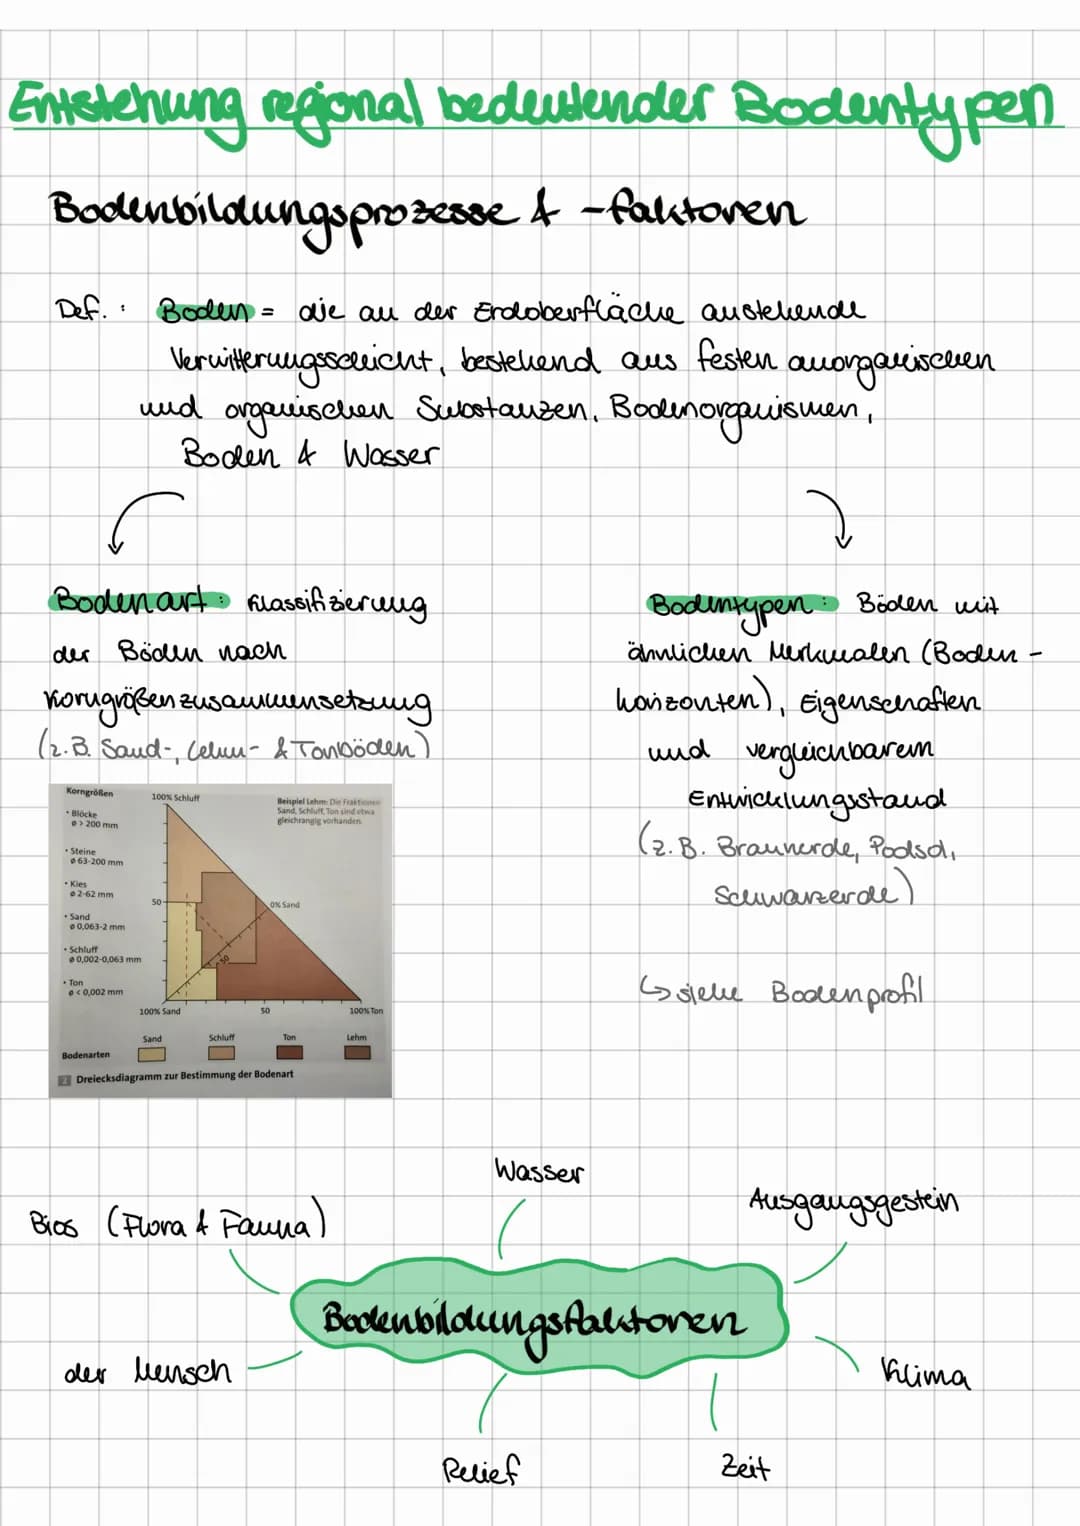 Entstehung regional bedeutender Bodentypen
Bodenbildungsprozesse & -faktoren
Def. : Boden = die an der Erdoberfläche anstehende
Verwitterungsschicht, bestehend aus festen anorganischen
und organischen Substanzen, Bodenorganismen,
Boden & Wasser
Bodenart: Klassifizierung
der Böden nach
Korngrößenzusammensetzung
(z.B. Sand-, Lehm- & Tonböden)
Bodentypen: Böden mit
ähnlichen Merkmalen (Boden-
horizonten), Eigenschaften
und vergleichbarem
Entwicklungsstand
(z.B. Braunerde, Podsol,
Schwarzerde)
↳ siehe Bodenprofil
Korngrößen
• Blöcke
ø > 200 mm
• Steine
ø 63-200 mm
• Kies
ø 2-62 mm
• Sand
ø 0,063-2 mm
• Schluff
ø 0,002-0,063 mm
• Ton
ø < 0,002 mm
100% Schluff
Beispiel Lehm: Die Fraktionen
Sand, Schluff, Ton sind etwa
gleichrangig vorhanden.
50
0% Sand
50
100% Sand
50
100% Ton
Sand
Schluff
Ton
Lehm
Bodenarten
2 Dreiecksdiagramm zur Bestimmung der Bodenart
Wasser
Bios (Flora & Fauna)
Ausgangsgestein
Bodenbildungsfaktoren
der Mensch
Klima
Relief
Zeit